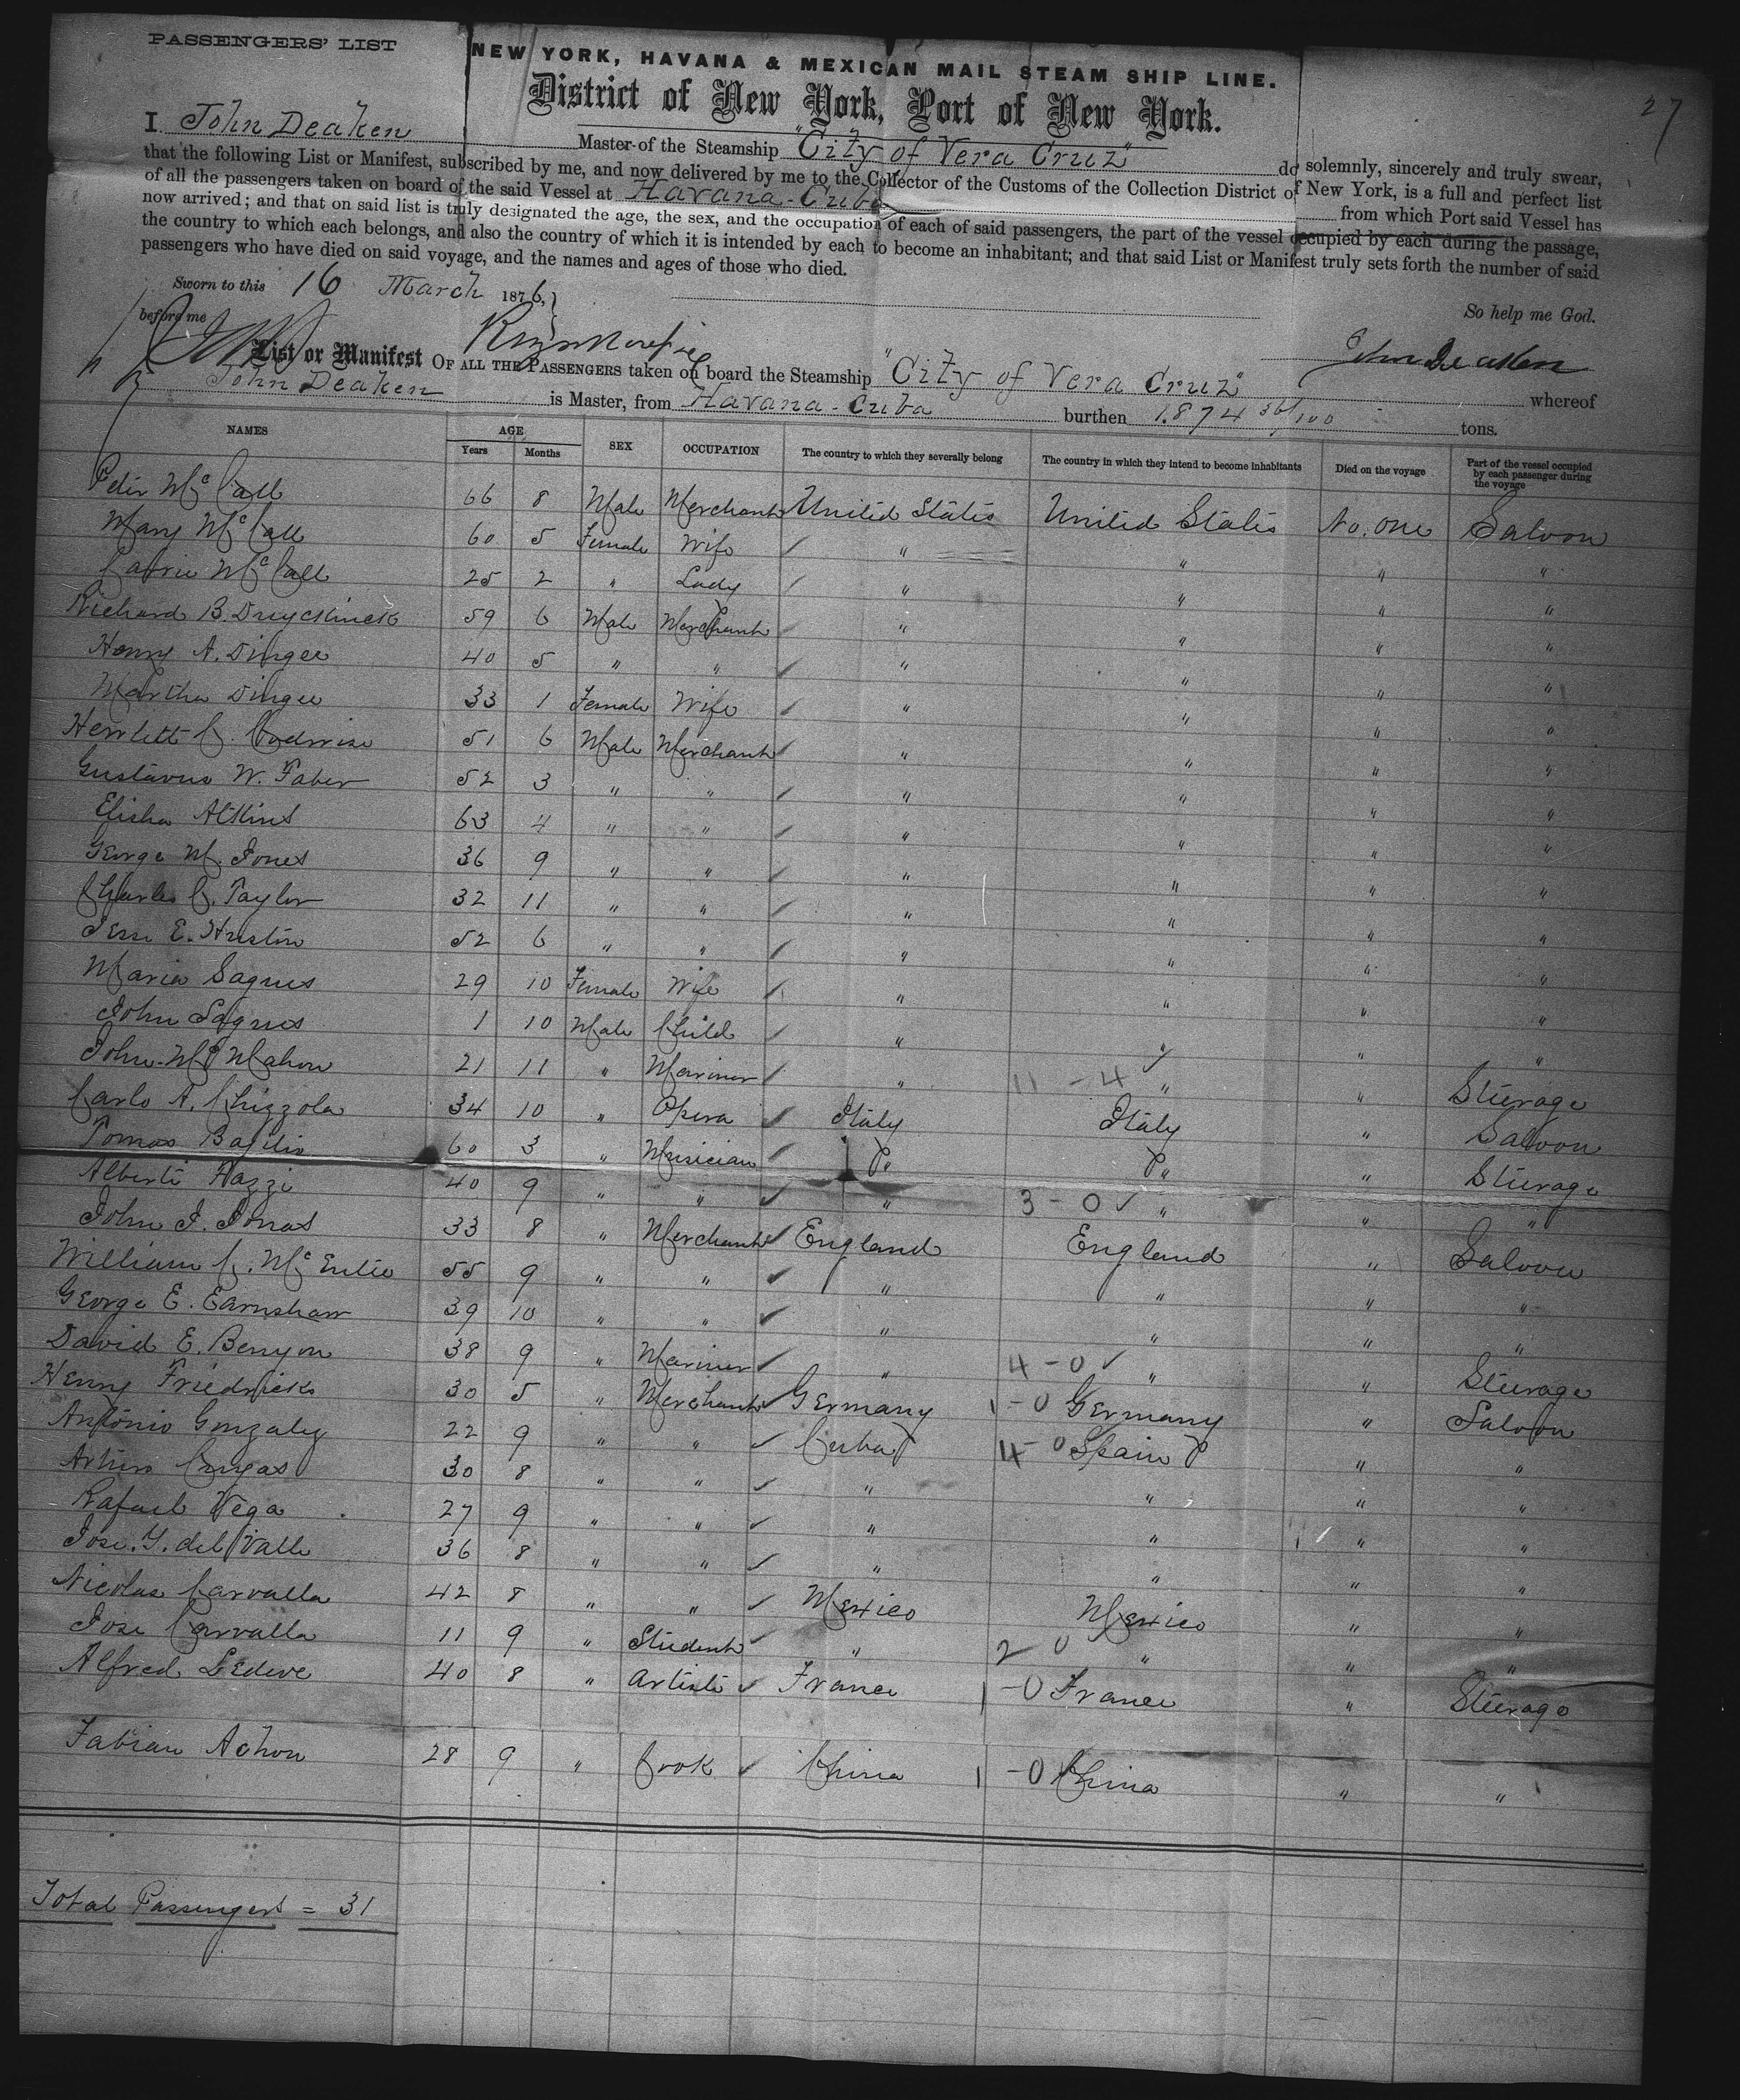 PASSENGERS' LIST
NEW YORK, HAVANA & MEXICAN MAIL STEAM SHIP LINE.
District of New York, Port of New York.
27
I John Deaken Master of the Steamship "City of Vera Cruz" do solemnly, sincerely and truly swear,
that the following List or Manifest, subscribed by me, and now delivered by me to the Collector of the Customs of the Collection District of New York, is a full and perfect list
of all the passengers taken on board of the said Vessel at Havana - Cuba from which Port said Vessel has
now arrived; and that on said list is truly designated the age, the sex, and the occupation of each of said passengers, the part of the vessel occupied by each during the passage,
the country to which each belongs, and also the country of which it is intended by each to become an inhabitant; and that said List or Manifest truly sets forth the number of said
passengers who have died on said voyage, and the names and ages of those who died.
Sworn to this 16 March 1876,
So help me God.
before me
John Deaken
List or Manifest OF ALL THE PASSENGERS taken on board the Steamship "City of Vera Cruz" whereof
John Deaken is Master, from Havana - Cuba burthen 1.874 36/100 tons.
NAMES AGE SEX OCCUPATION The country to which they severally belong The country in which they intend to become inhabitants Died on the voyage Part of the vessel occupied by each passenger during the voyage
Years Months
Peter McCall 66 8 Male Merchant United States United States No. one Saloon
Mary McCall 60 5 Female Wife " " " "
Carrie McCall 25 2 " Lady " " " "
Richard B. Duyckinck 59 6 Male Merchant " " " "
Henry A. Dingee 40 5 " " " " " "
Martha Dingee 33 1 Female Wife " " " "
Hewlett C. Codwise 51 6 Male Merchant " " " "
Gustavus W. Faber 52 3 " " " " " "
Elisha Atkins 63 4 " " " " " "
George M. Jones 36 9 " " " " " "
Charles C. Taylor 32 11 " " " " " "
Jesse E. Huston 52 6 " " " " " "
Maria Sagues 29 10 Female Wife " " " "
John Sagues 1 10 Male Child " " " "
John McMahon 21 11 " Mariner " 11 - 4 " " Steerage
Carlo A. Chizzola 34 10 " Opera Italy Italy " Saloon
Tomas Basilio 60 3 " Musician " " " Steerage
Alberti Hazzi 40 9 " " " 3 - 0 " " "
John J. Jonas 33 8 " Merchant England England " Saloon
William C. McEntie 55 9 " " " " " "
George E. Earnshaw 39 10 " " " " " "
David E. Benyon 38 9 " Mariner " 4 - 0 " " Steerage
Henry Friedricks 30 5 " Merchant Germany 1 - 0 Germany " Saloon
Antonio Gonzaley 22 9 " " Cuba 4 - 0 Spain " "
Arturo Cruyas 30 8 " " " " " "
Rafael Vega 27 9 " " " " " "
Jose. Y. del Valle 36 8 " " " " " "
Nicolas Carvalla 42 8 " " Mexico Mexico " "
Jose Carvalla 11 9 " Student " 2 0 " " "
Alfred Ledeve 40 8 " Artiste France 1 - 0 France " Steerage
Fabian Achon 28 9 " Cook China 1 - 0 China " "
Total Passengers = 31